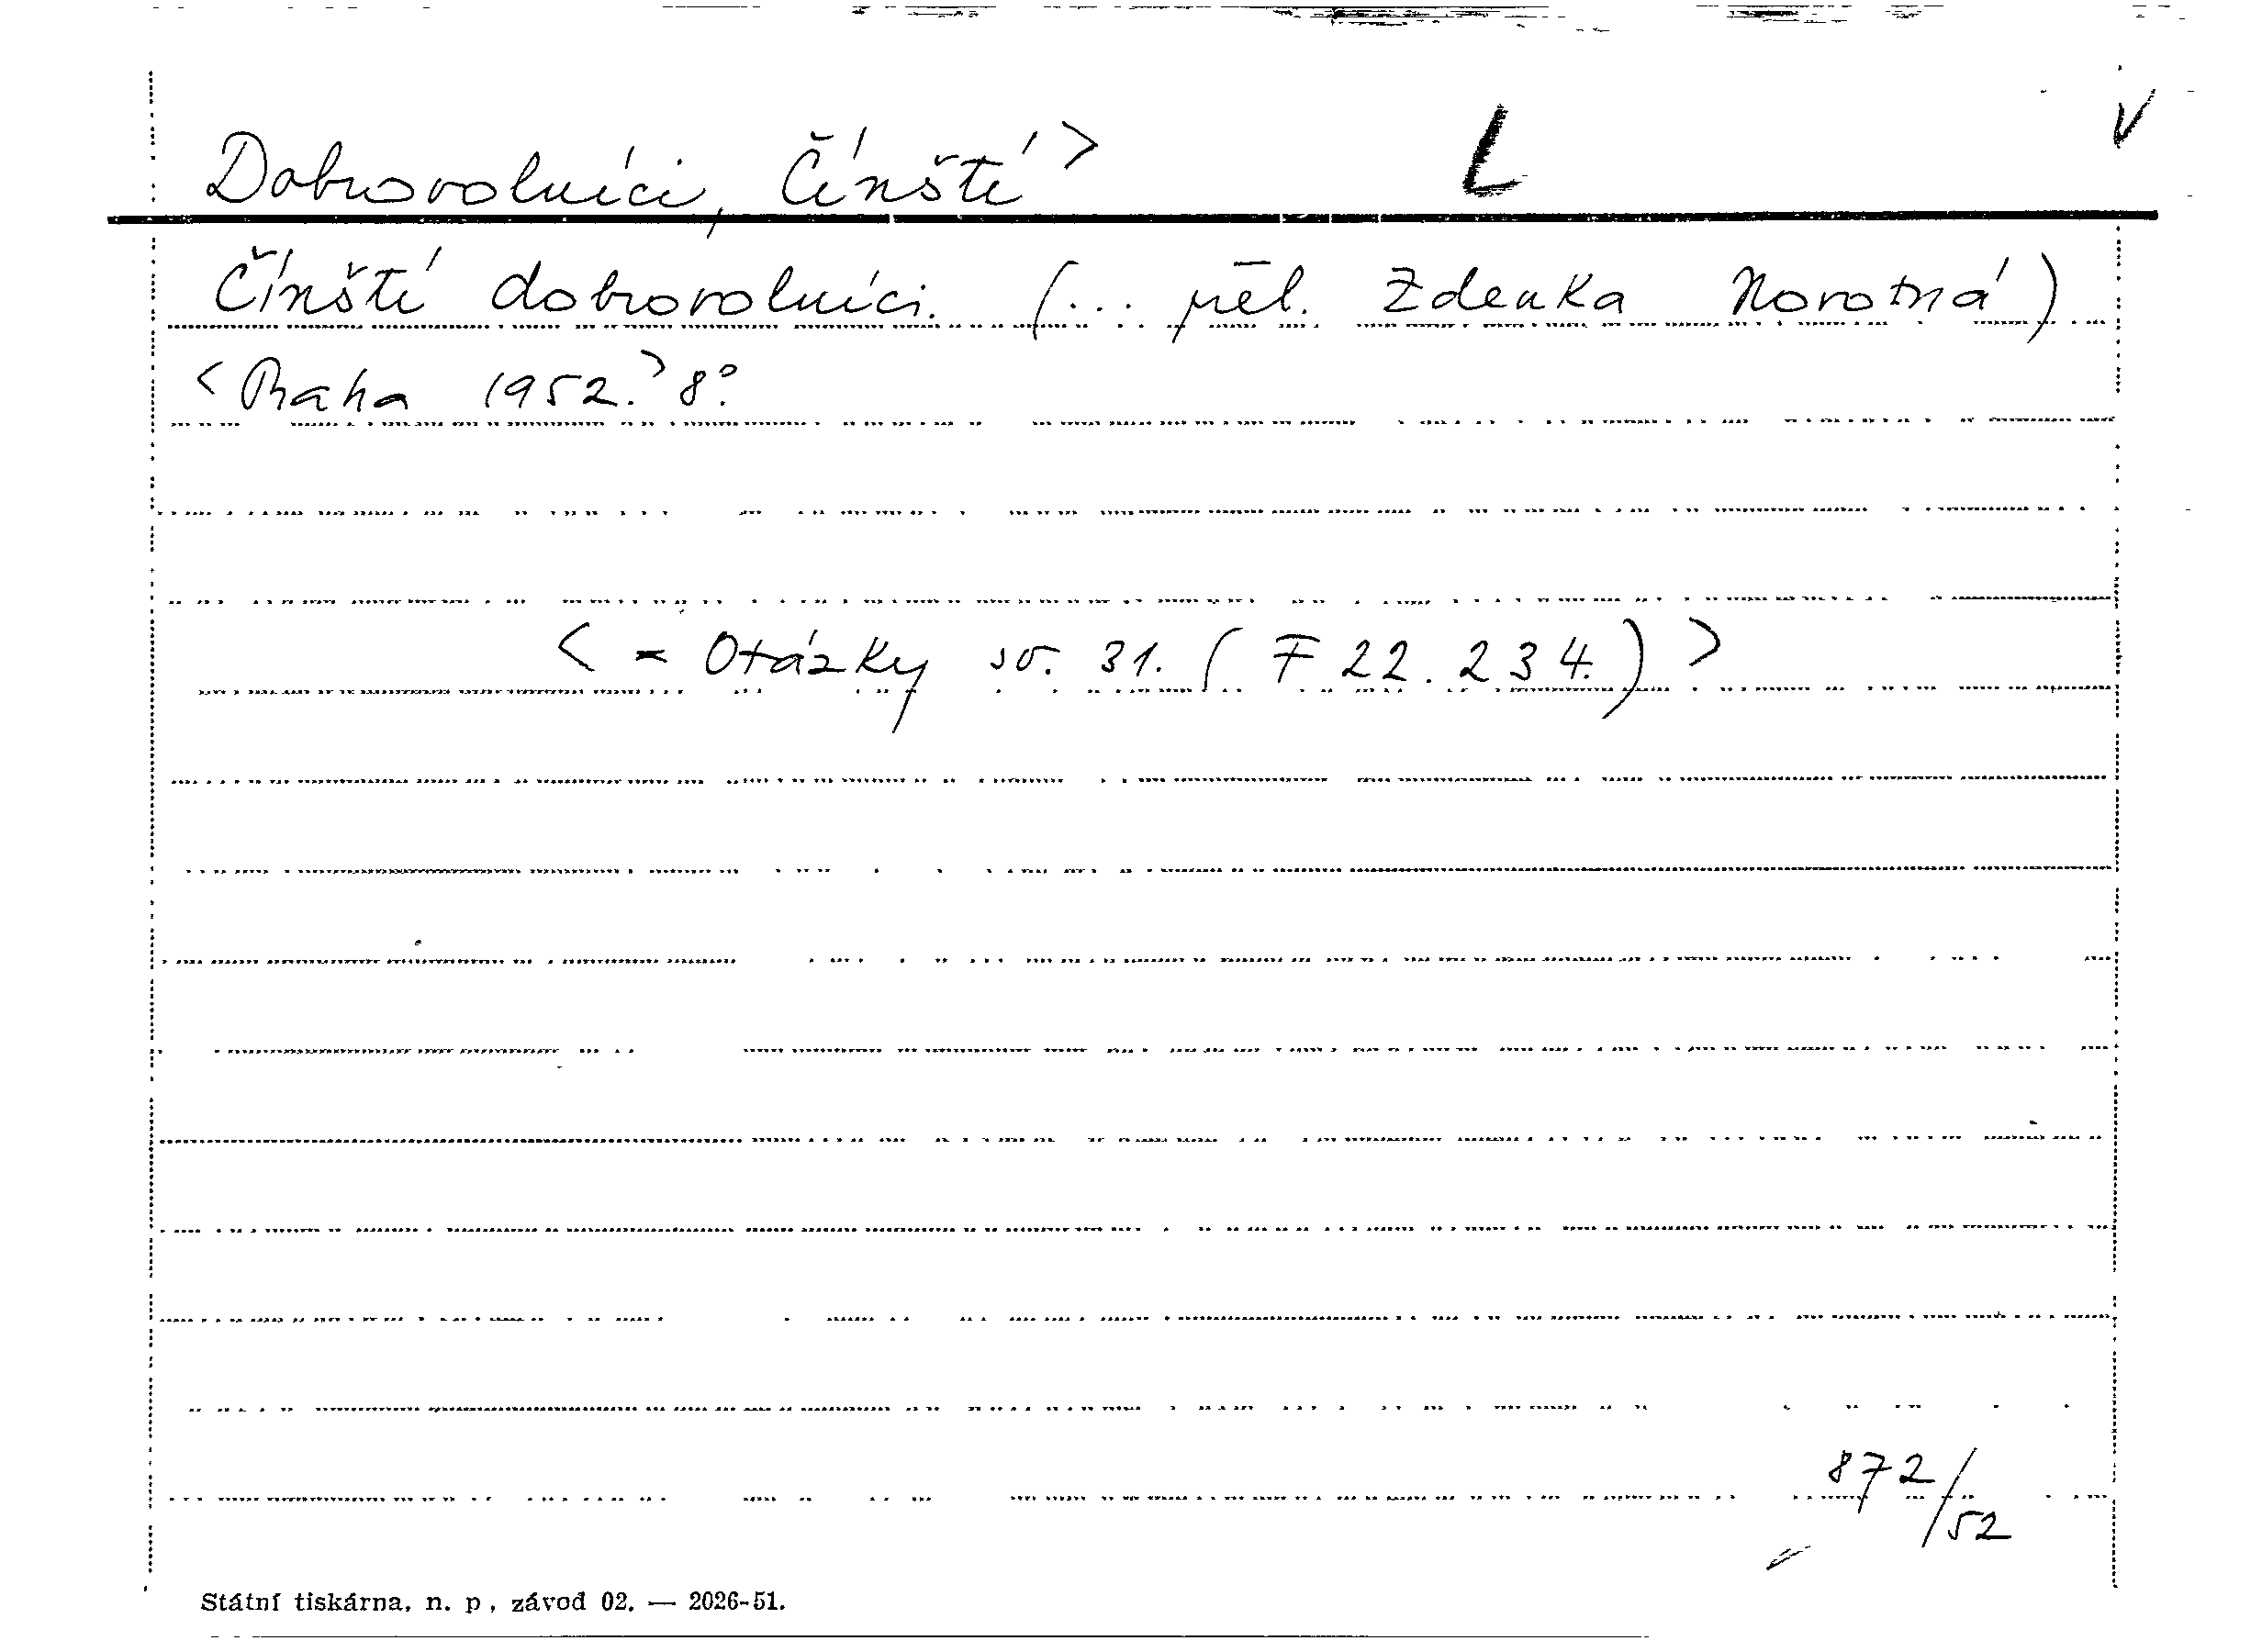 Dobrovolníci, Čínští > L V
Čínští dobrovolníci. (... přel. Zdenka Novotná)
<Praha 1952.> 8°.
< = Otázky sv. 31. ( F 22.234.) >
872/52
Státní tiskárna, n. p., závod 02. — 2026-51.